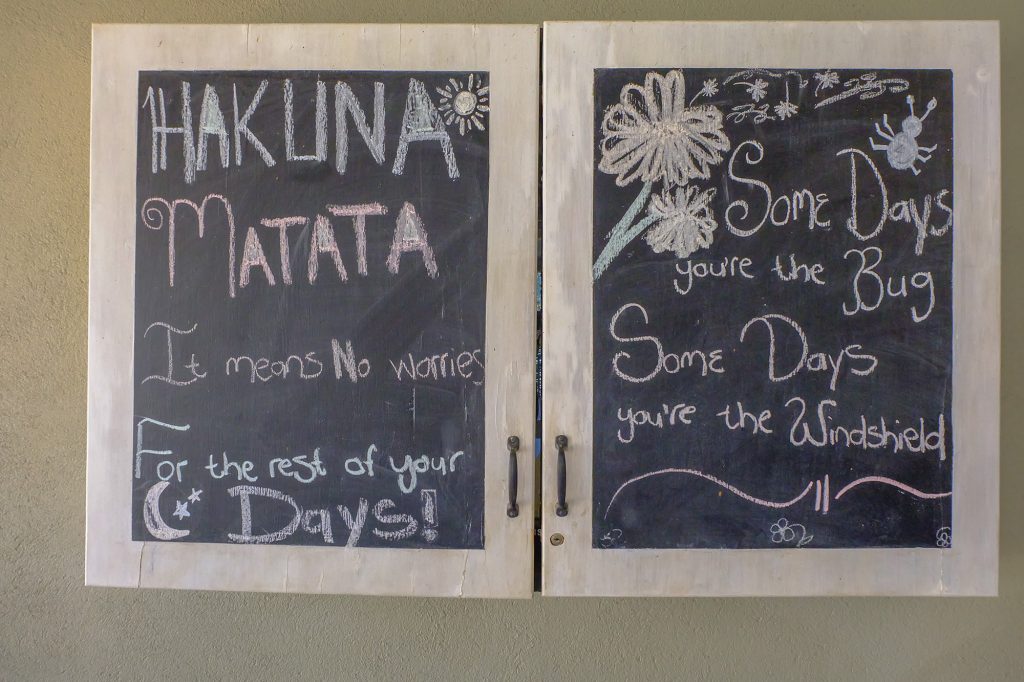 HAKUNA
MATATA
It means No worries
For the rest of your
Days!
Some Days
you're the Bug
Some Days
you're the Windshield